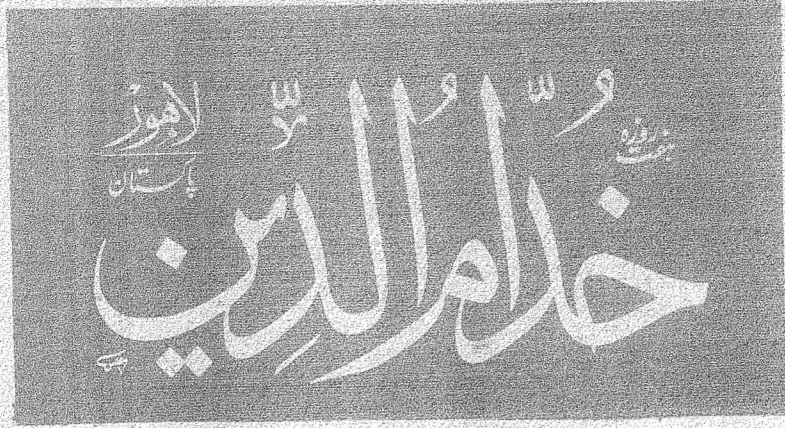 ہفت روزہ
خُدّامُ الدِّین
لاہور
پاکستان